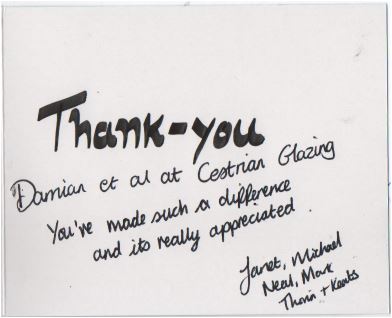 Thank-you
Damian et al at Cestrian Glazing
You've made such a difference
and its really appreciated.
Janet, Michael
Neal, Mark
Thorin + Keats